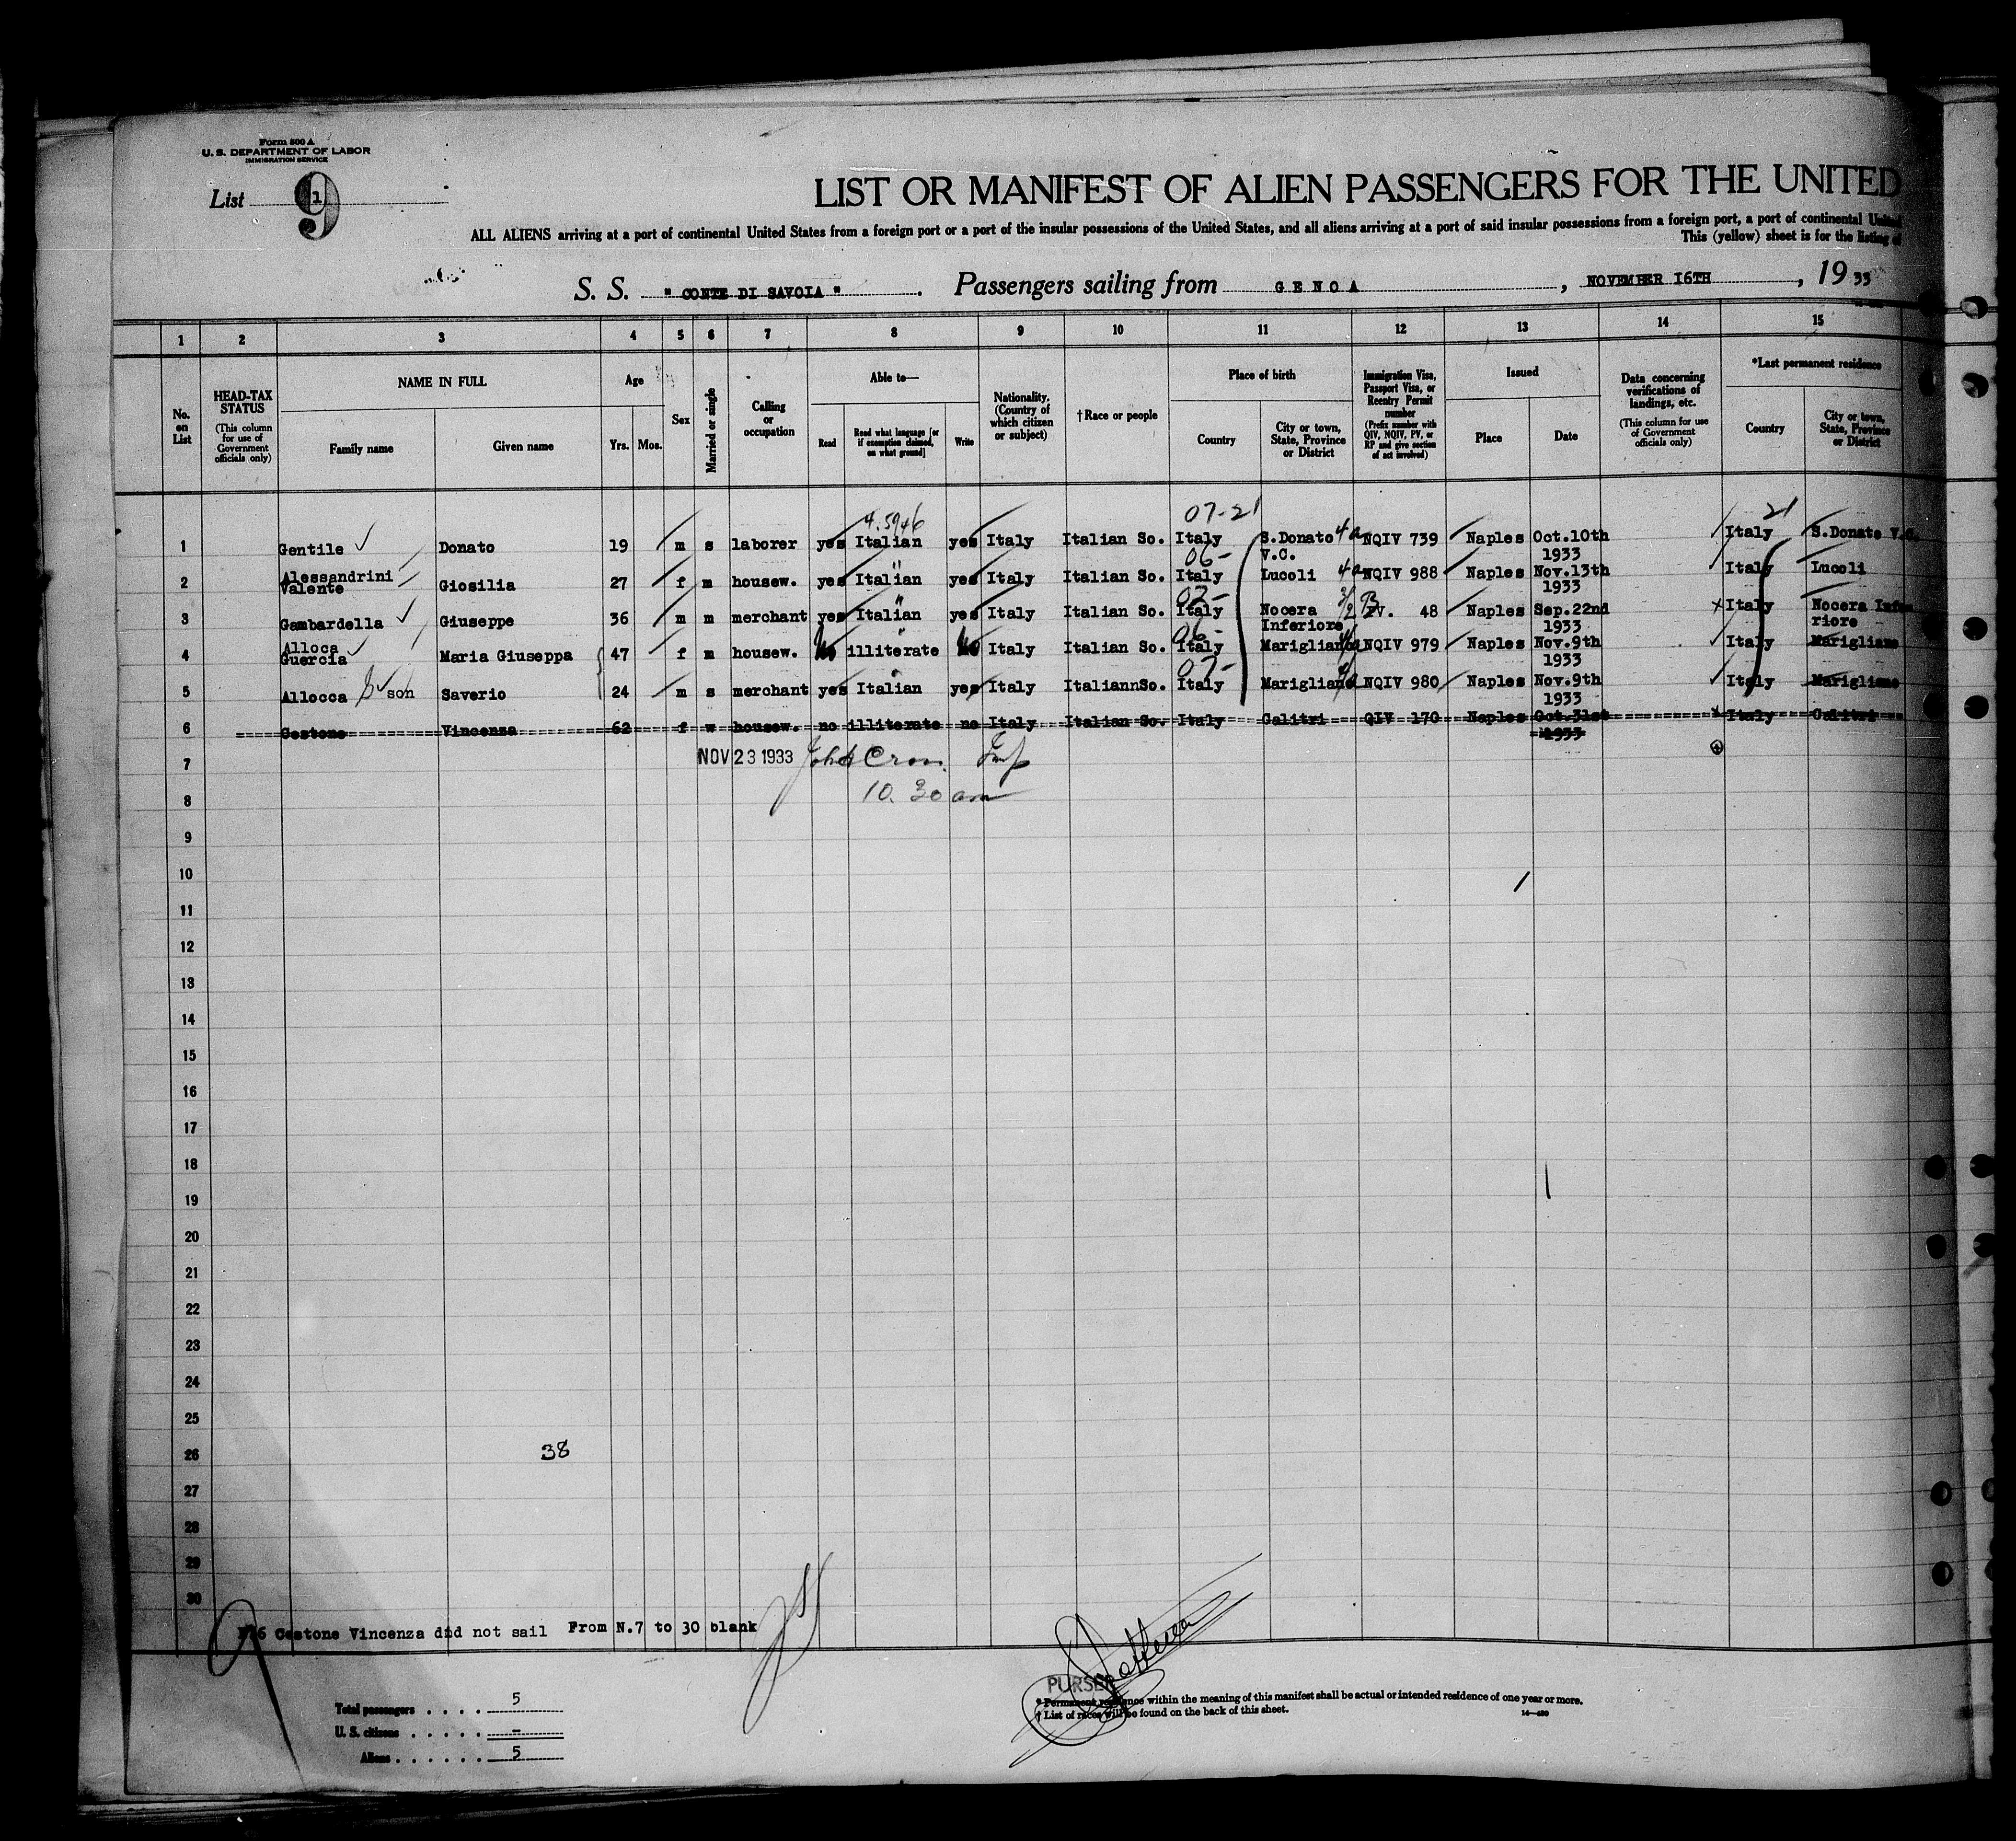 Form 500 A
U. S. DEPARTMENT OF LABOR
IMMIGRATION SERVICE
List 9
1
LIST OR MANIFEST OF ALIEN PASSENGERS FOR THE UNITED
ALL ALIENS arriving at a port of continental United States from a foreign port or a port of the insular possessions of the United States, and all aliens arriving at a port of said insular possessions from a foreign port, a port of continental United
This (yellow) sheet is for the listing of
S. S. " CONTE DI SAVOIA " . Passengers sailing from GENOA , NOVEMBER 16TH , 19 33
1 2 3 4 5 6 7 8 9 10 11 12 13 14 15
No. on List
HEAD-TAX STATUS
(This column for use of Government officials only)
NAME IN FULL
Family name
Given name
Age
Yrs. Mos.
Sex
Married or single
Calling or occupation
Able to—
Read
Read what language [or if exemption claimed, on what ground]
Write
Nationality. (Country of which citizen or subject)
†Race or people
Place of birth
Country
City or town, State, Province or District
Immigration Visa, Passport Visa, or Reentry Permit number
(Prefix number with QIV, NQIV, PV, or RP and give section of act involved)
Issued
Place
Date
Data concerning verifications of landings, etc.
(This column for use of Government officials only)
*Last permanent residence
Country
City or town, State, Province or District
4.5946 07-21 21
1 Gentile Donato 19 m s laborer yes Italian yes Italy Italian So. Italy S.Donato V.C. 4a NQIV 739 Naples Oct.10th 1933 Italy S.Donato V.C.
06-
2 Alessandrini Valente Giosilia 27 f m housew. yes Italian yes Italy Italian So. Italy Lucoli 4a NQIV 988 Naples Nov.13th 1933 Italy Lucoli
3 Gambardella Giuseppe 36 m m merchant yes Italian yes Italy Italian So. Italy Nocera Inferiore 48 Naples Sep.22nd 1933 Italy Nocera Inferiore
06-
4 Alloca Guercia Maria Giuseppa 47 f m housew. No illiterate No Italy Italian So. Italy Marigliano NQIV 979 Naples Nov.9th 1933 Italy Marigliano
07-
5 Allocca son Saverio 24 m s merchant yes Italian yes Italy ItaliannSo. Italy Marigliano NQIV 980 Naples Nov.9th 1933 Italy Marigliano
6 Cestone Vincenza 62 f w housew. no illiterate no Italy Italian So. Italy Calitri QIV 170 Naples Oct.31st 1933 Italy Calitri
7 NOV 23 1933
8 10.30 am
9
10
11
12
13
14
15
16
17
18
19
20
21
22
23
24
25
26 38
27
28
29
30
N.6 Cestone Vincenza did not sail From N.7 to 30 blank
Total passengers . . . . 5
U. S. citizens . . . . . –
Aliens . . . . . . 5
PURSER
* Permanent residence within the meaning of this manifest shall be actual or intended residence of one year or more.
† List of races will be found on the back of this sheet.
14—430